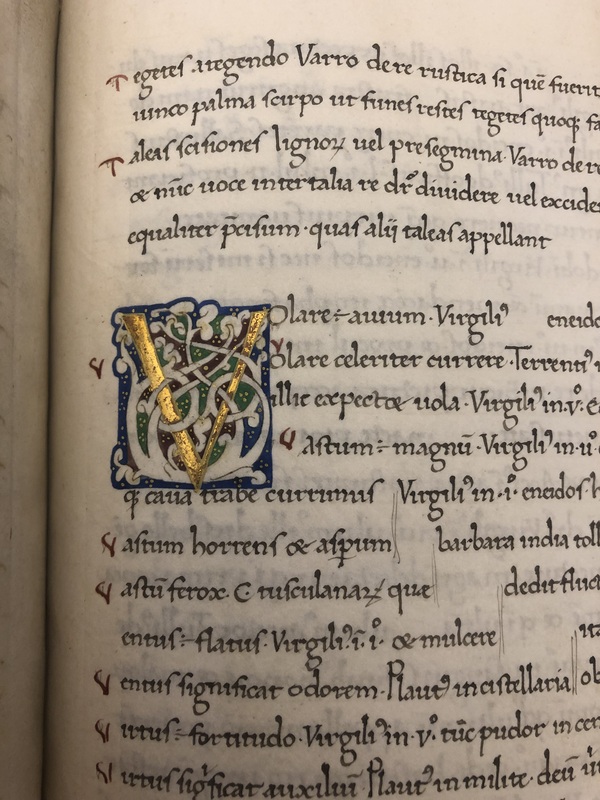 Tegetes a tegendo Varro de re rustica si quē fuerit
iunco palma scirpo ut funes restes tegetes quoqꝫ fa
Taleas scisiones lignoꝝ uel presegmina· Varro de re
& nūc uoce intertalia re dr̄ diuidere uel excide
equaliter p̄cisum· quas alii taleas appellant
Volare ÷ auium· Virgiliꝰ eneido
Volare celeriter currere· Terrentiꝰ
illic expecta & uola· Virgiliꝰ in·v̊·
Vastum ÷ magnū· Virgiliꝰ in·
qꝫ caua trabe currimus Virgiliꝰ in·i̊· eneidos·
Vastum horrens & asꝑum barbara india toll
Vastū ferox· C tusculanaꝝ que dedit fluc
entus ÷ flatus· Virgiliꝰ·ī·i̊· & mulcere
Ventus significat odorem· Plautꝰ in cistellaria ob
Virtus ÷ fortitudo· Virgiliꝰ in·v̊· tūc pudor in cen
Virtus significat auxiliū Plautꝰ in milite· deū